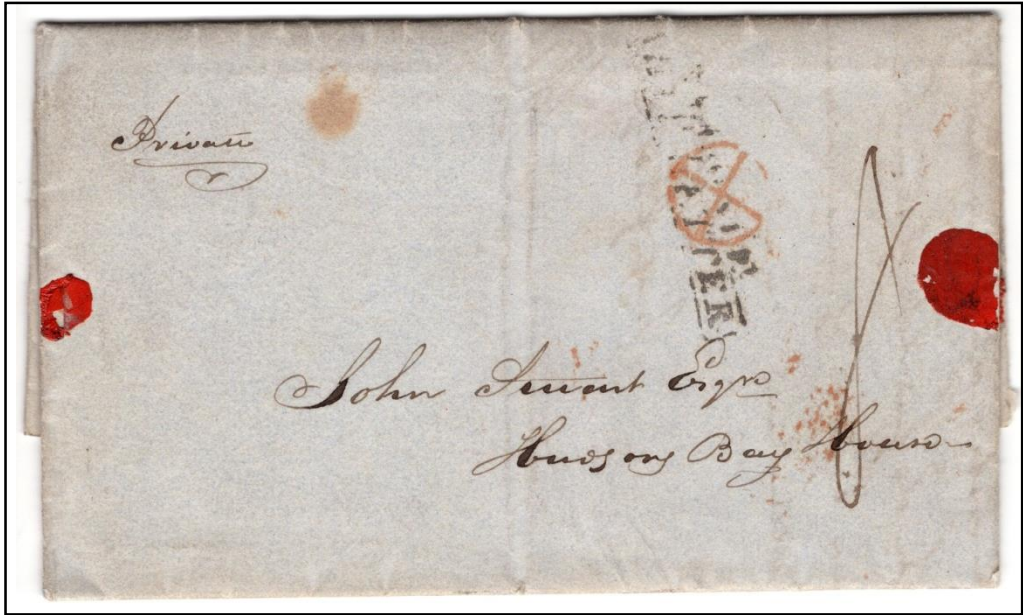 Private
John Stuart Esqre
Hudsons Bay House